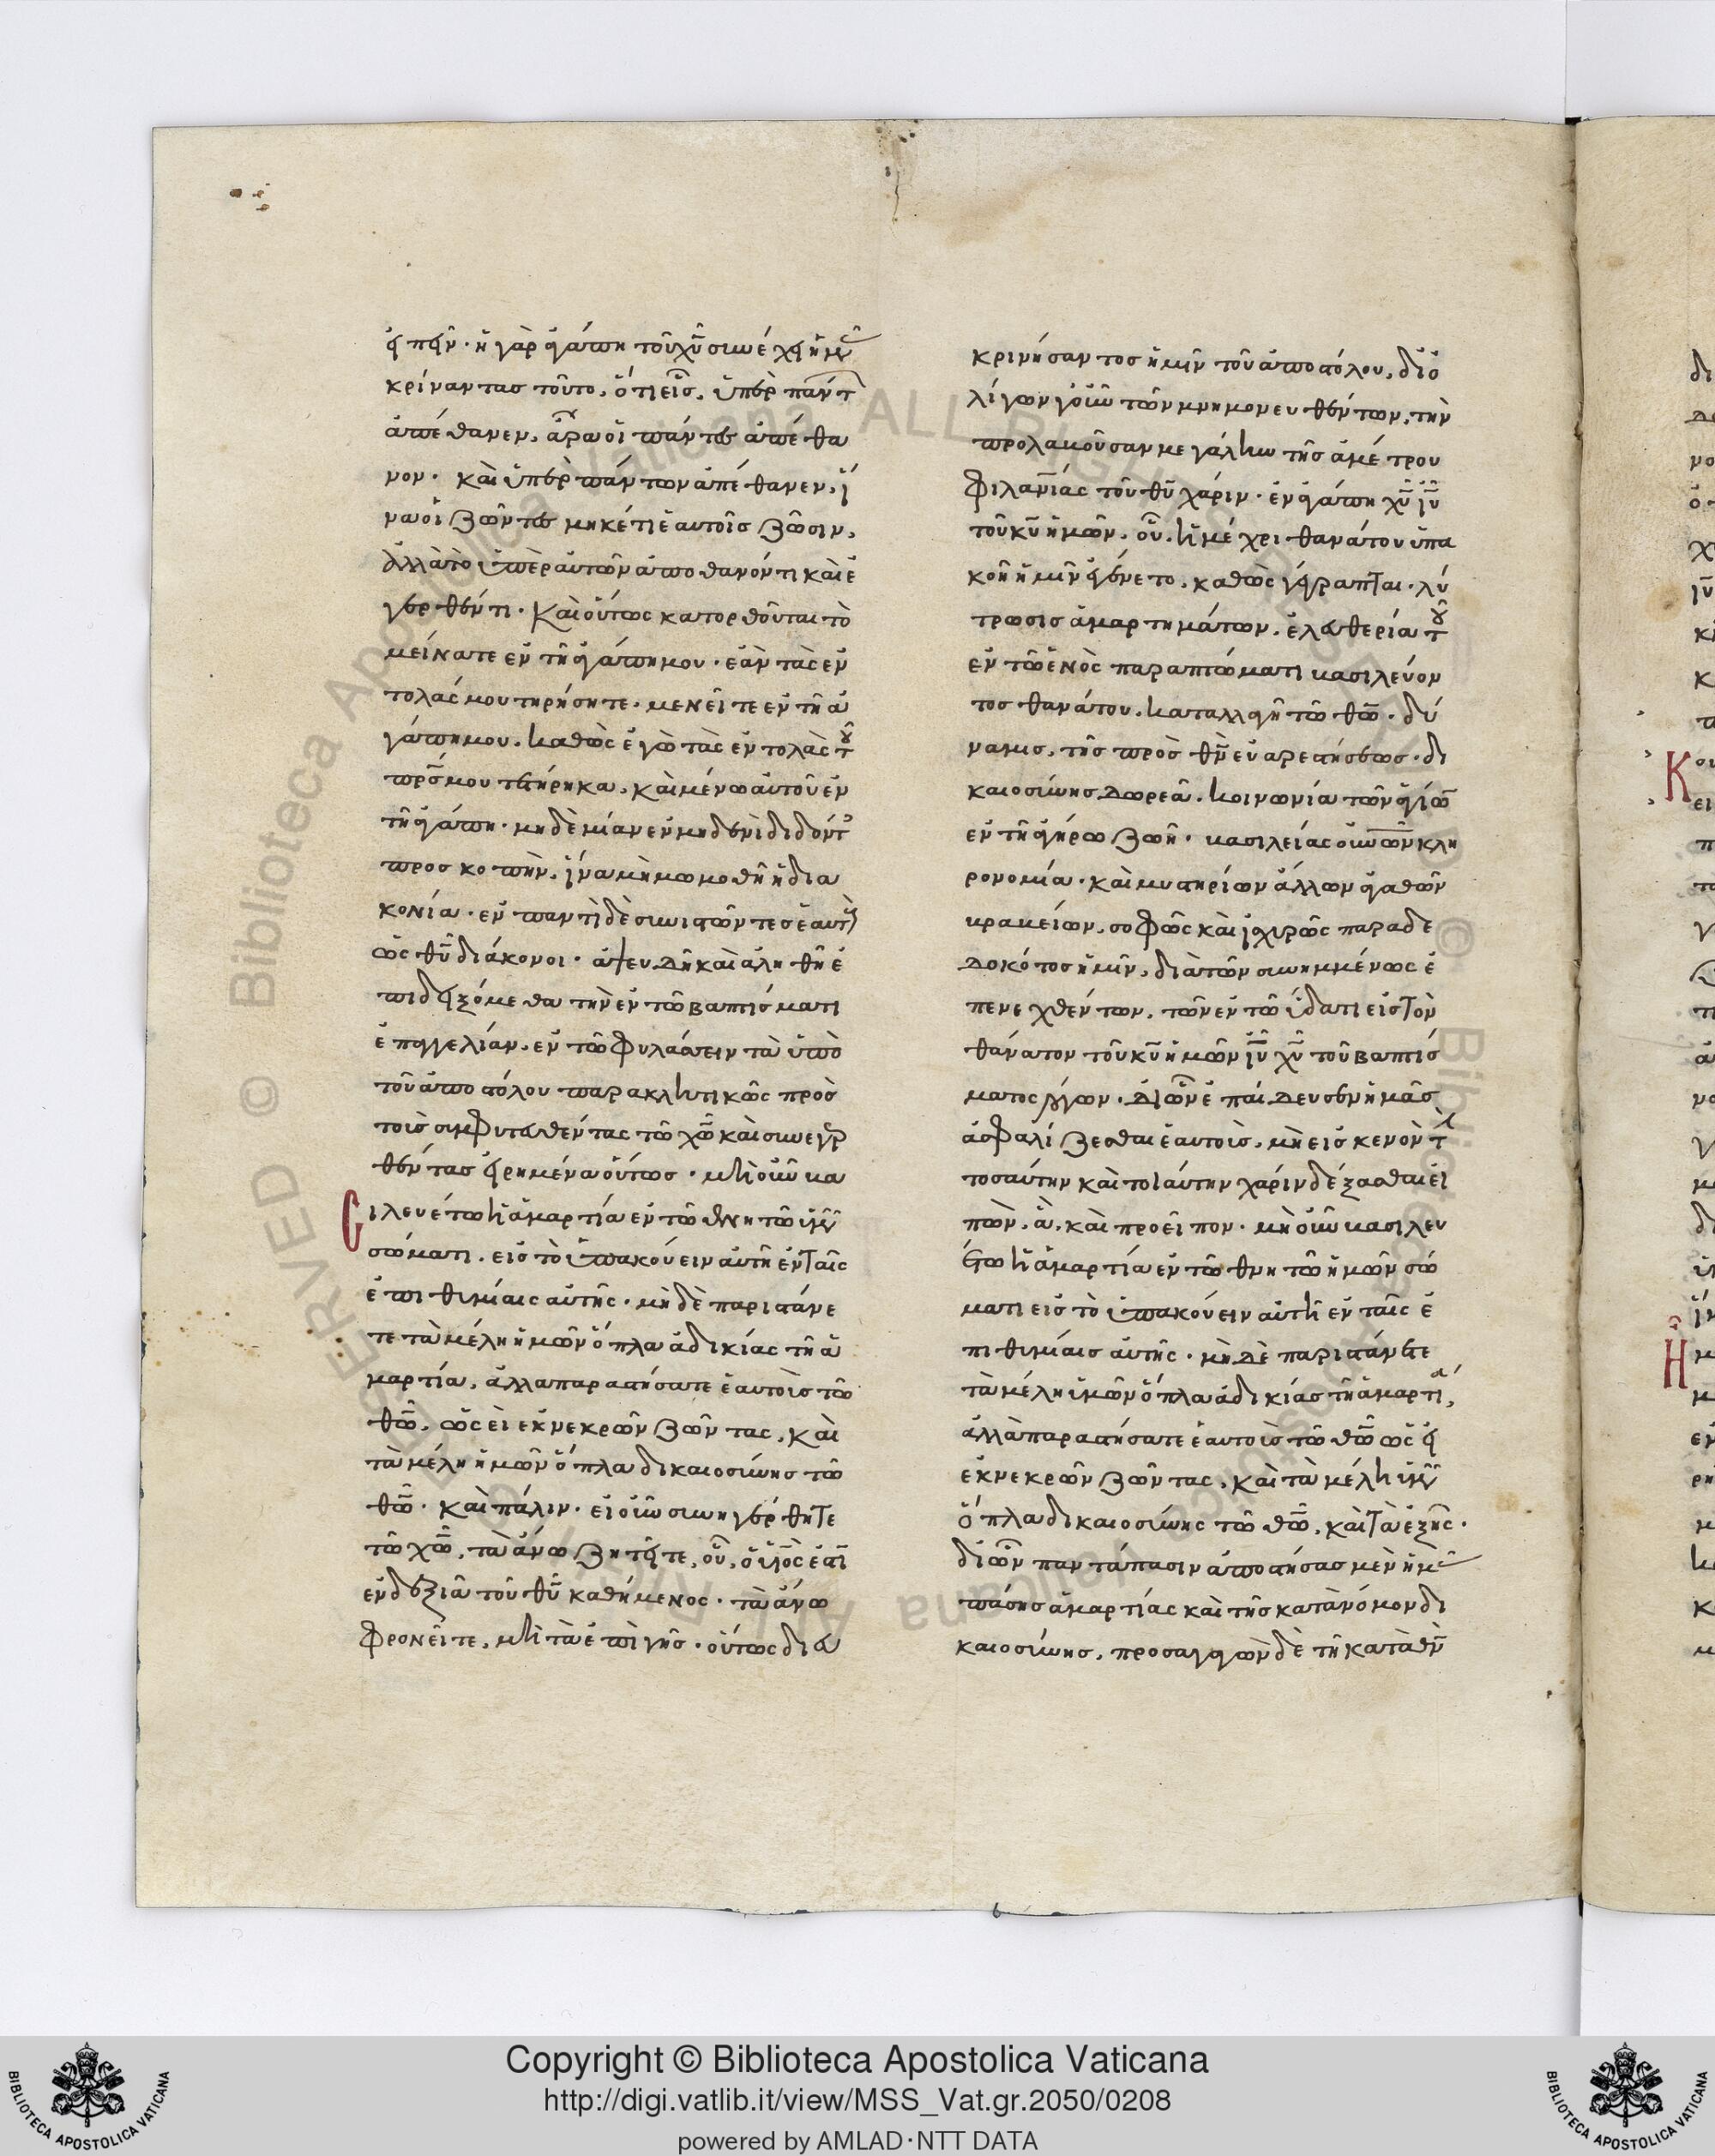 εἰπεῖν· ἡ γὰρ ἀγάπη τοῦ χῦ συνέχει ἡμᾶς
κρίναντας τοῦτο, ὅτι εἷς, ὑπὲρ πάντ
ἀπέθανεν, ἄρα οἱ πάντες ἀπέθα
νον· καὶ ὑπὲρ πάντων ἀπέθανεν, ἵ
να οἱ ζῶντες μηκέτι ἑαυτοῖς ζῶσιν,
ἀλλὰ τῶ ὑπὲρ αὐτῶν ἀποθανόντι καὶ ἐ
γερθέντι· Καὶ οὕτως κατορθοῦται τὸ
μείνατε ἐν τῆ ἀγάπη μου· ἐὰν τὰς ἐν
τολάς μου τηρήσητε· μενεῖτε ἐν τῆ ἀ
γάπη μου. καθὼς ἐγὼ τὰς ἐντολὰς τοῦ
πρς μου τετήρηκα, καὶ μένω αὐτοῦ ἐν
τῆ ἀγάπη· μηδὲ μίαν ἐν μηδενὶ διδόντες
προσκοπὴν, ἵνα μὴ μωμοθῆ ἡ δια
κονία· ἐν παντὶ δὲ συνιστῶντες ἑαυτοὺς
ὡς θῦ διάκονοι· ἀψευδῆ καὶ ἀληθῆ ἐ
πιδειξόμεθα τὴν ἐν τῶ βαπτίσματι
ἐπαγγελίαν, ἐν τῶ φυλάσσειν τὰ ὑπὸ
τοῦ ἀποστόλου παρακλητικῶς πρὸς
τοὺς συμφυτευθέντας τῶ χῶ καὶ συνεγερ
θέντας εἰρημένα οὕτως· μὴ οὖν βα
σιλευέτω ἡ ἁμαρτία ἐν τῶ θνητῶ ὑμῶν
σώματι. εἰς τὸ ὑπακούειν αὐτῆ ἐν ταῖς
ἐπιθυμίαις αὐτῆς· μὴ δὲ παριστάνε
τε τὰ μέλη ἡμῶν ὅπλα ἀδικίας τῆ ἁ
μαρτία, ἀλλὰ παραστήσατε ἑαυτοὺς τῶ
θῶ, ὡσεὶ ἐκ νεκρῶν ζῶντας, καὶ
τὰ μέλη ἡμῶν ὅπλα δικαιοσύνης τῶ
θῶ· καὶ πάλιν· εἰ οὖν συνηγέρθητε
τῶ χῶ, τὰ ἄνω ζητεῖτε, οὗ, ὁ χς ἐστὶ
ἐν δεξιᾶ τοῦ θῦ καθήμενος· τὰ ἄνω
φρονεῖτε, μὴ τὰ ἐπὶ γῆς· οὕτως δια
κρινήσαντος ἡμῖν τοῦ ἀποστόλου, δι' ὀ
λίγων γοῦν τῶν μνημονευθέντων, τὴν
προλαβοῦσαν μεγάλην τῆς ἀμέτρου
φιλανίας τοῦ θῦ χάριν· ἐν ἀγάπη χῦ ἰῦ
τοῦ κῦ ἡμῶν, οὗ, ἡ μέχρι θανάτου ὑπα
κοὴ ἡμῖν ἐγένετο, καθὼς γέγραπται· λύ
τρωσις ἁμαρτημάτων, ἐλευθερία τοῦ
ἐν τῶ ἑνὸς παραπτώματι βασιλεύον
τος θανάτου, καταλλαγὴ τῶ θῶ· δύ
ναμις, τῆς πρὸς θν εὐαρεστήσεως· δι
καιοσύνης δωρεὰ, κοινωνία τῶν ἁγίων
ἐν τῆ ἀγήρω ζωῆ· βασιλείας οὐνῶν κλη
ρονομία· καὶ μυστηρίων ἄλλων ἀγαθῶν
βραβείων, σοφῶς καὶ ἰσχυρῶς παραδε
δωκότος ἡμῖν, διὰ τῶν συνημμένως ἐ
πενεχθέντων, τῶν ἐν τῶ ὕδατι εἰς τὸν
θάνατον τοῦ κῦ ἡμῶν ἰῦ χῦ τοῦ βαπτίσ
ματος λόγων· δι' ὧν ἐπαίδευσεν ἡμᾶς
ἀσφαλίζεσθαι ἑαυτοὺς, μὴ εἰς κενὸν τὴν
τοσαύτην καὶ τοιαύτην χάριν δέξασθαι εἰ
πὼν, ἃ, καὶ προεῖπον· μὴ οὖν βασιλευ
έτω ἡ ἁμαρτία ἐν τῶ θνητῶ ἡμῶν σώ
ματι εἰς τὸ ὑπακούειν αὐτῆ ἐν ταῖς ἐ
πιθυμίαις αὐτῆς· μὴ δὲ παριστάνετε
τὰ μέλη ὑμῶν ὅπλα ἀδικίας τῆ ἁμαρτία,
ἀλλὰ παραστήσατε ἑαυτοὺς τῶ θῶ ὡσεὶ
ἐκ νεκρῶν ζῶντας, καὶ τὰ μέλη ὑμῶν
ὅπλα δικαιοσύνης τῶ θῶ, καὶ τὰ ἑξῆς·
δι' ὧν παντάπασιν ἀποστήσας μὲν ἡμᾶς
πάσης ἁμαρτίας καὶ τῆς κατὰ νόμον δι
καιοσύνης, προσαγαγὼν δὲ τῆ κατὰ θν
Copyright © Biblioteca Apostolica Vaticana
http://digi.vatlib.it/view/MSS_Vat.gr.2050/0208
powered by AMLAD·NTT DATA
BIBLIOTECA APOSTOLICA VATICANA
BIBLIOTECA APOSTOLICA VATICANA